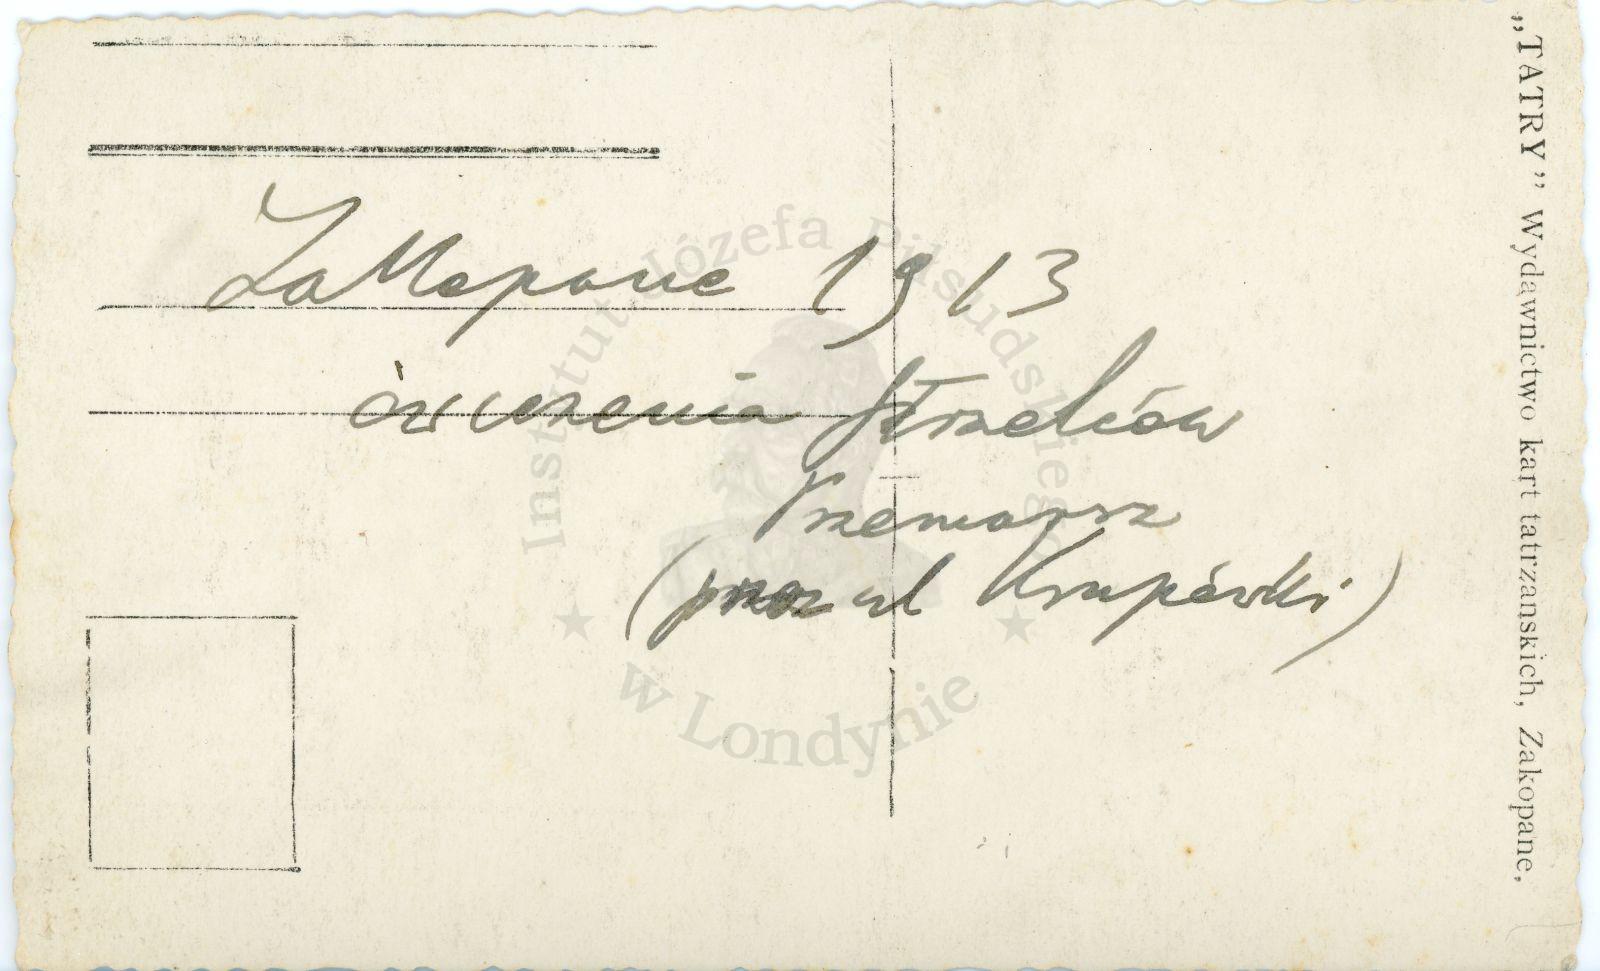 Zakopane 1913
ćwiczenia Strzelców
Przemarsz
(przez ul Krupówki)
„TATRY” Wydawnictwo kart tatrzańskich, Zakopane,
Instytut Józefa Piłsudskiego
w Londynie